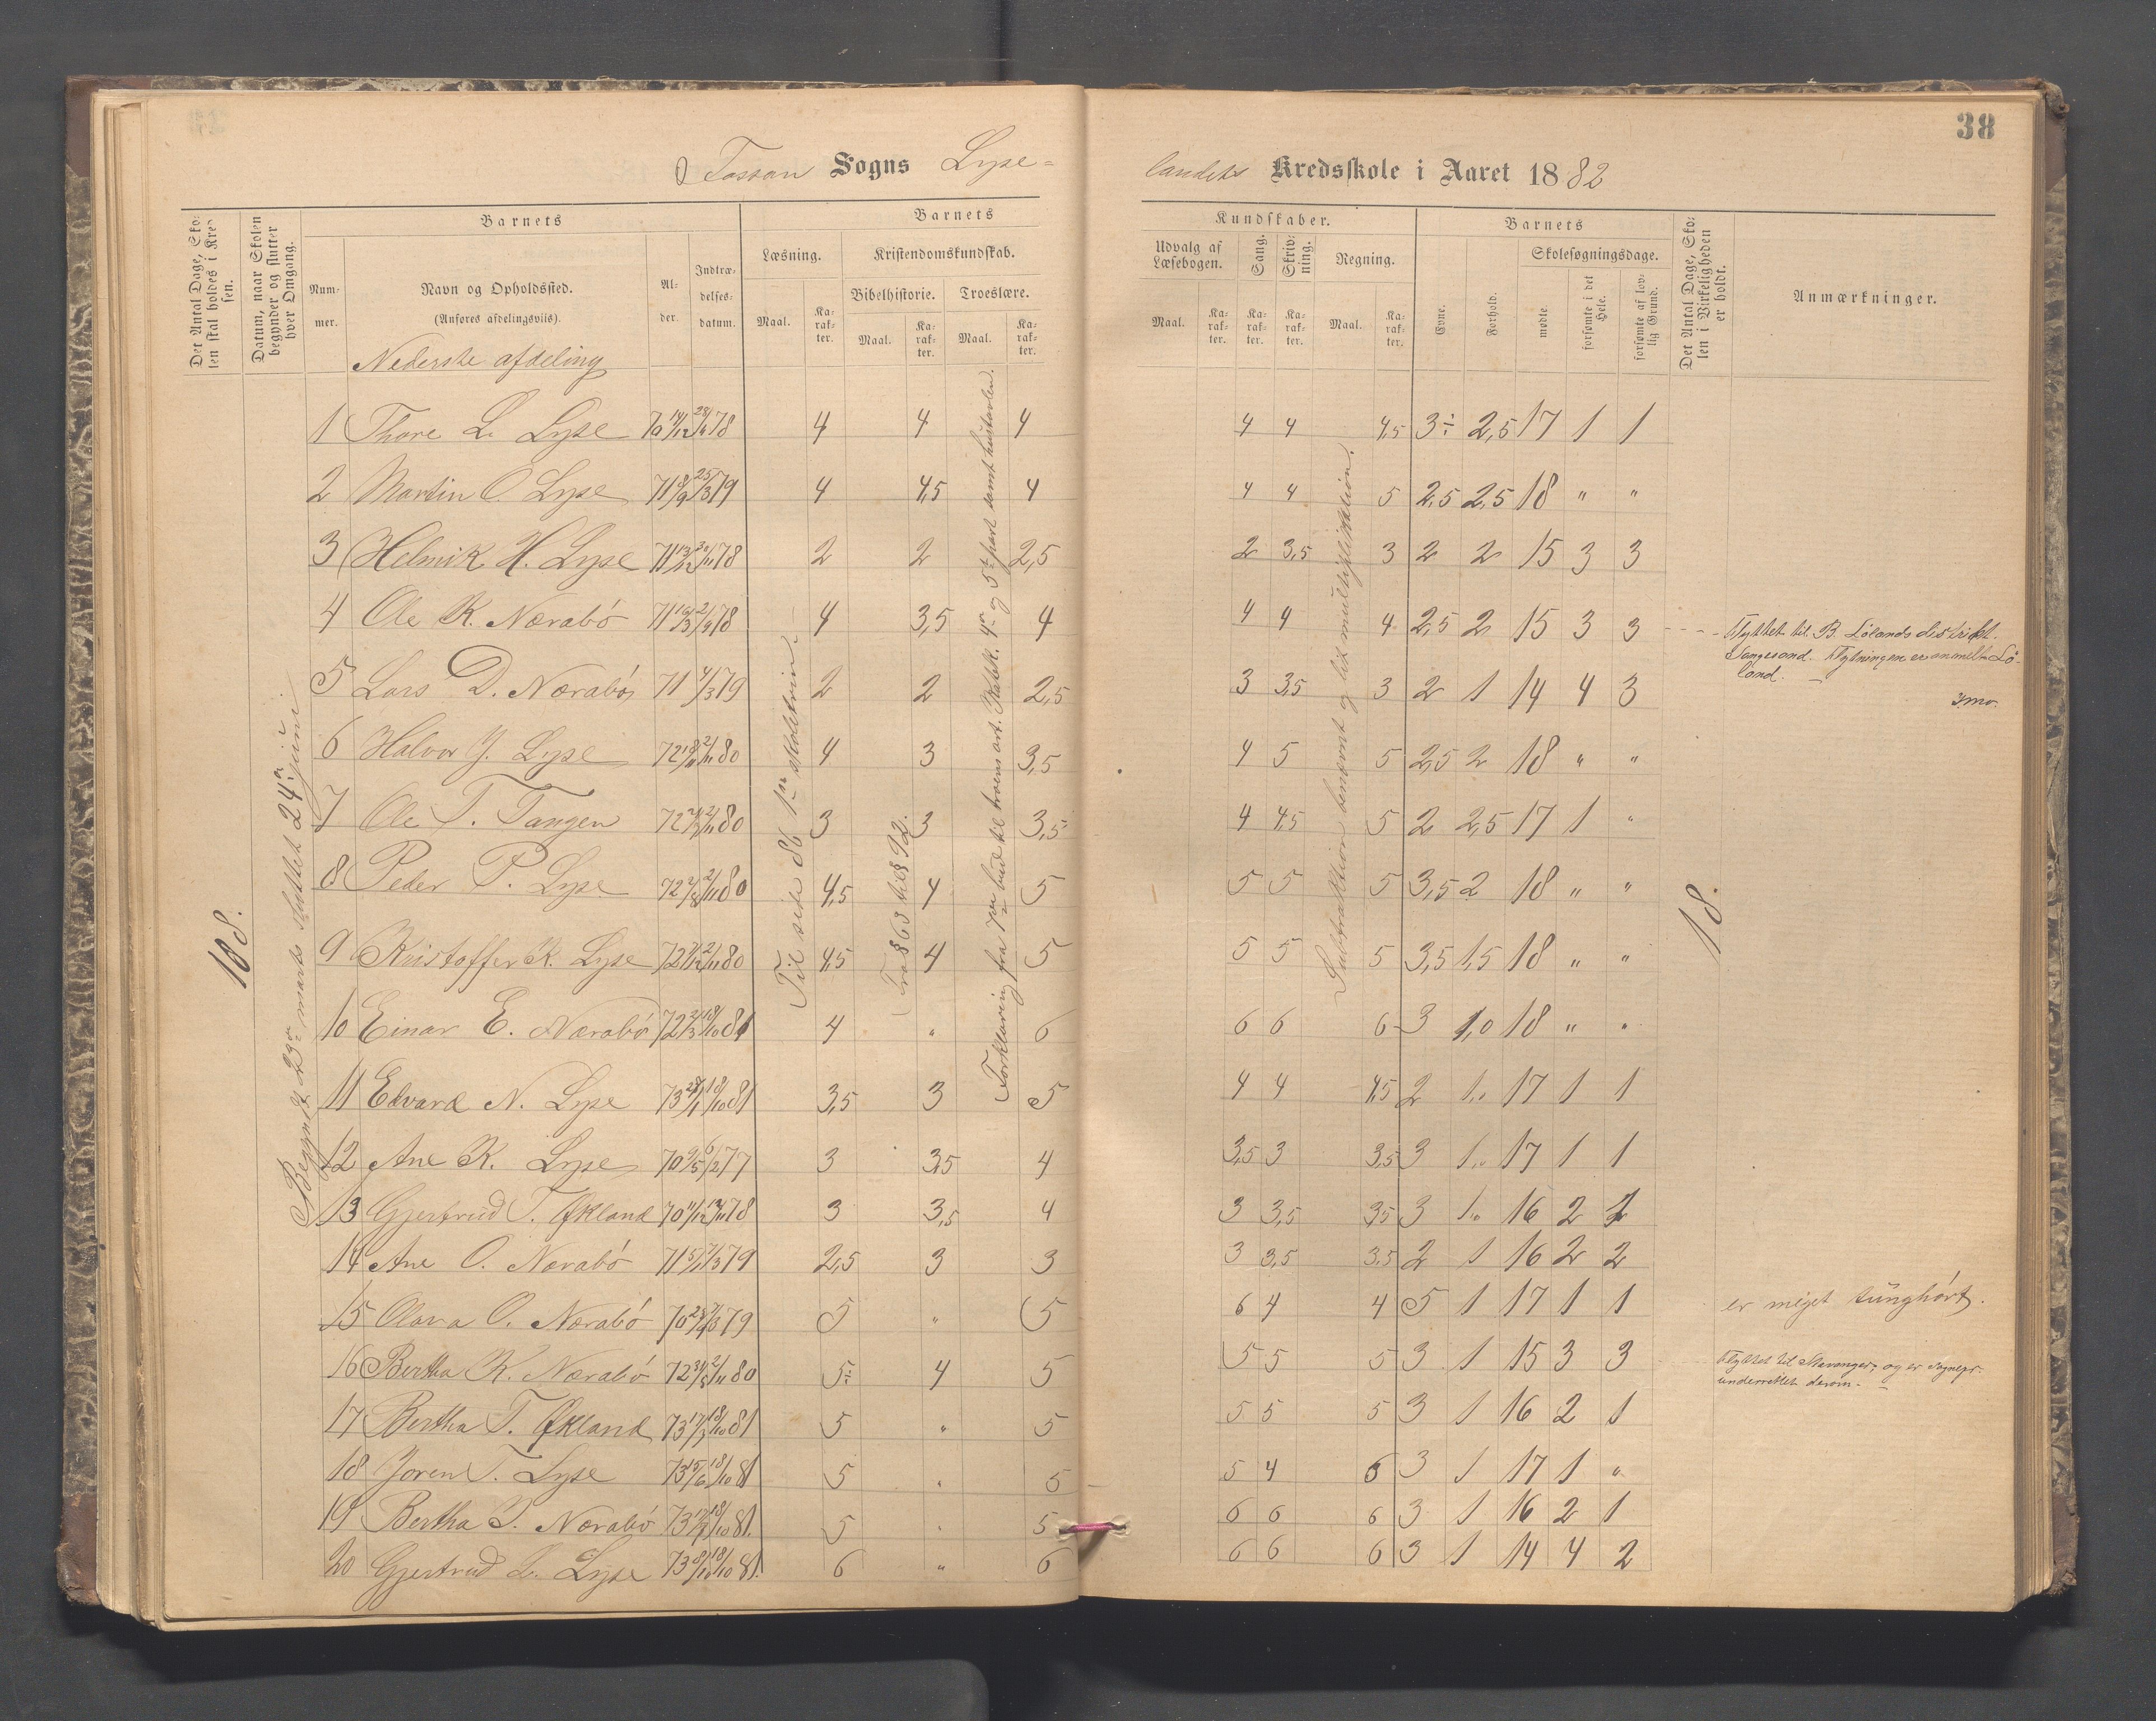 38
Fossan Sogns Lyse=
landets Kredsskole i Aaret 1882
Det Antal Dage, Sko-
len skal holdes i Kred-
sen.
Datum, naar Skolen
begynder og slutter
hver Omgang.
Barnets
Num-
mer.
Navn og Opholdssted.
(Anføres afdelingsviis).
Al-
der.
Indtræ-
delses-
datum.
Barnets
Læsning.
Maal.
Ka-
rak-
ter.
Kristendomskundskab.
Bibelhistorie.
Maal.
Ka-
rak-
ter.
Troeslære.
Maal.
Ka-
rak-
ter.
Kundskaber.
Udvalg af
Læsebogen.
Maal.
Ka-
rak-
ter.
Sang.
Ka-
rak-
ter.
Skriv-
ning.
Ka-
rak-
ter.
Regning.
Maal.
Ka-
rak-
ter.
Barnets
Evne.
Forhold.
Skolesøgningsdage.
mødte.
forsømte i det
Hele.
forsømte af lov-
lig Grund.
Det Antal Dage, Sko-
len i Virkeligheden
er holdt.
Anmærkninger.
Nederste afdeling
18.
Begyndt 23de marts sluttet 24de juni
Til side 86 1ste skoletrin.
Fra § 63 til § 92.
Forklaring fra 7de bud til troens art. Katek. 4de og 5te part samt hustavlen.
Subtraktion benævnt og lidt multiplikation.
18.
1 Thore L. Lyse 70 14/12 28/4 78 4 4 4 4 4 4,5 3÷ 2,5 17 1 1
2 Martin O. Lyse 71 8/9 25/3 79 4 4,5 4 4 4 5 2,5 2,5 18 " "
3 Helmik H. Lyse 71 13/12 78 2 2 2,5 2 3,5 3 2 2 15 3 3
4 Ole K. Nærabö 71 78 4 3,5 4 4 4 4 2,5 2 15 3 3
Flyttet til B. Lölands distrikt.
Flytningen er anmeldt Lö-
land.
5 Lars D. Nærabö 71 4/3 79 2 2 2,5 3 3,5 3 2 1 14 4 3
6 Halvor J. Lyse 72 2/11 80 4 3 3,5 4 5 5 2,5 2 18 " "
7 Ole T. Tangen 72 2/11 80 3 3 3,5 4 4,5 5 2 2,5 17 1 "
8 Peder P. Lyse 72 2/11 80 4,5 4 5 5 5 5 3,5 2 18 " "
9 Kristoffer K. Lyse 72 2/11 80 4,5 4 5 5 5 5 3,5 1,5 18 " "
10 Einar E. Nærabö 72 2/3 18/10 81 4 " 6 6 6 6 3 1,0 18 " "
11 Edvard N. Lyse 73 18/10 81 3,5 3 5 4 4 4,5 2 1,0 17 1 1
12 Ane K. Lyse 70 9/5 6/2 77 3 3,5 4 3,5 3 3,5 3 1,0 17 1 1
13 Gjertrud T. Økland 70 78 3 3,5 4 3 3,5 3,5 3 1,0 16 2 2
14 Ane O. Nærabö 71 79 2,5 3 3 3 3,5 3,5 2 1 16 2 2
15 Olava O. Nærabö 70 79 5 " 5 6 4 4 5 1 17 1 1 er meget tunghört.
16 Bertha K. Nærabö 72 2/11 80 5÷ 4 5 5 5 5 3 1 15 3 3
Flyttet til Stavanger, og er sognepr.
underrettet derom.
17 Bertha T. Økland 73 18/10 81 5 " 5 5 5 5 3 1 16 2 1
18 Joren T. Lyse 73 15/6 18/10 81 5 " 5 5 4 6 3 1 17 1 "
19 Bertha T. Nærabö 73 18/10 81. 5 " 5 6 6 6 3 1 16 2 1
20 Gjertrud L. Lyse 73 8/10 18/10 81. 6 " 6 6 6 6 3 1 14 4 2